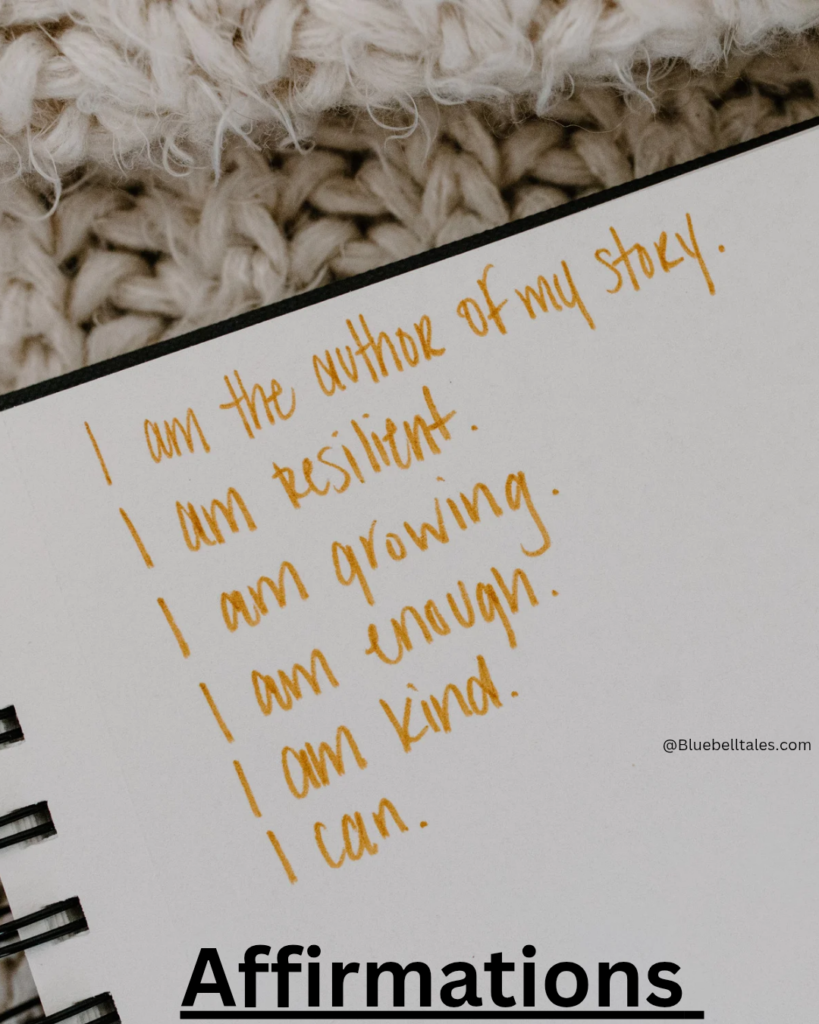 I am the author of my story.
I am resilient.
I am growing.
I am enough.
I am kind.
I can.
@Bluebelltales.com
Affirmations